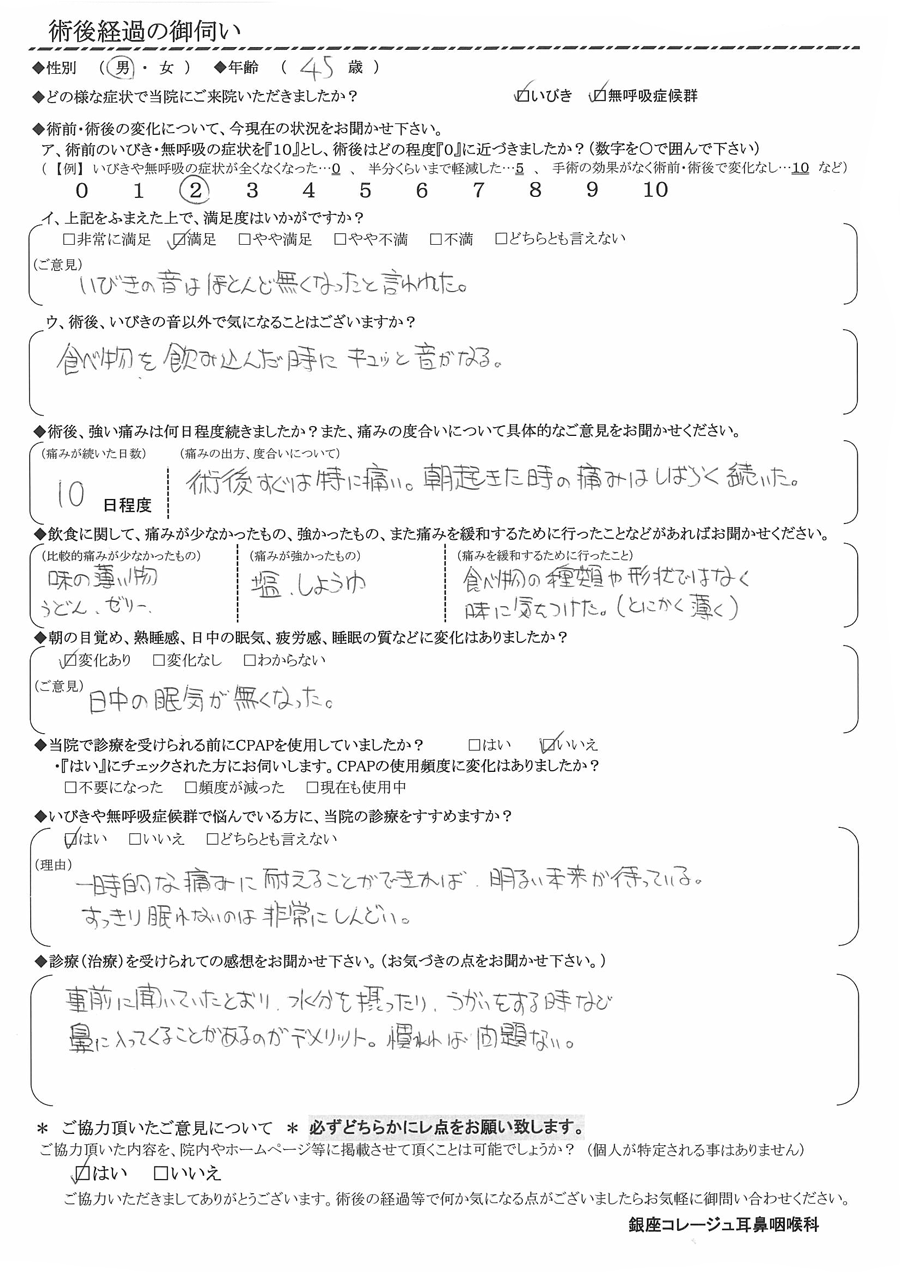 術後経過の御伺い
◆性別 (男・女) ◆年齢 (45 歳)
◆どの様な症状で当院にご来院いただきましたか? ☑いびき ☑無呼吸症候群
◆術前・術後の変化について、今現在の状況をお聞かせ下さい。
ア、術前のいびき・無呼吸の症状を『10』とし、術後はどの程度『0』に近づきましたか?(数字を○で囲んで下さい)
(【例】いびきや無呼吸の症状が全くなくなった…0 、 半分くらいまで軽減した…5 、 手術の効果がなく術前・術後で変化なし…10 など)
0 1 2 3 4 5 6 7 8 9 10
イ、上記をふまえた上で、満足度はいかがですか?
□非常に満足 ☑満足 □やや満足 □やや不満 □不満 □どちらとも言えない
(ご意見)
いびきの音はほとんど無くなったと言われた。
ウ、術後、いびきの音以外で気になることはございますか?
食べ物を飲み込んだ時にキュッと音がなる。
◆術後、強い痛みは何日程度続きましたか?また、痛みの度合いについて具体的なご意見をお聞かせください。
(痛みが続いた日数) (痛みの出方、度合いについて)
10 日程度 術後すぐは特に痛い。朝起きた時の痛みはしばらく続いた。
◆飲食に関して、痛みが少なかったもの、強かったもの、また痛みを緩和するために行ったことなどがあればお聞かせください。
(比較的痛みが少なかったもの) (痛みが強かったもの) (痛みを緩和するために行ったこと)
味の薄い物 塩、しょうゆ 食べ物の種類や形状ではなく
うどん、ゼリー、 味に気をつけた。(とにかく薄く)
◆朝の目覚め、熟睡感、日中の眠気、疲労感、睡眠の質などに変化はありましたか?
☑変化あり □変化なし □わからない
(ご意見)
日中の眠気が無くなった。
◆当院で診療を受けられる前にCPAPを使用していましたか? □はい ☑いいえ
・『はい』にチェックされた方にお伺いします。CPAPの使用頻度に変化はありましたか?
□不要になった □頻度が減った □現在も使用中
◆いびきや無呼吸症候群で悩んでいる方に、当院の診療をすすめますか?
☑はい □いいえ □どちらとも言えない
(理由)
一時的な痛みに耐えることができれば、明るい未来が待っている。
すっきり眠れないのは非常にしんどい。
◆診療(治療)を受けられての感想をお聞かせ下さい。(お気づきの点をお聞かせ下さい。)
事前に聞いていたとおり、水分を摂ったり、うがいをする時など
鼻に入ってくることがあるのがデメリット。慣れれば問題ない。
* ご協力頂いたご意見について * 必ずどちらかにレ点をお願い致します。
ご協力頂いた内容を、院内やホームページ等に掲載させて頂くことは可能でしょうか? (個人が特定される事はありません)
☑はい □いいえ
ご協力いただきましてありがとうございます。術後の経過等で何か気になる点がございましたらお気軽に御問い合わせください。
銀座コレージュ耳鼻咽喉科